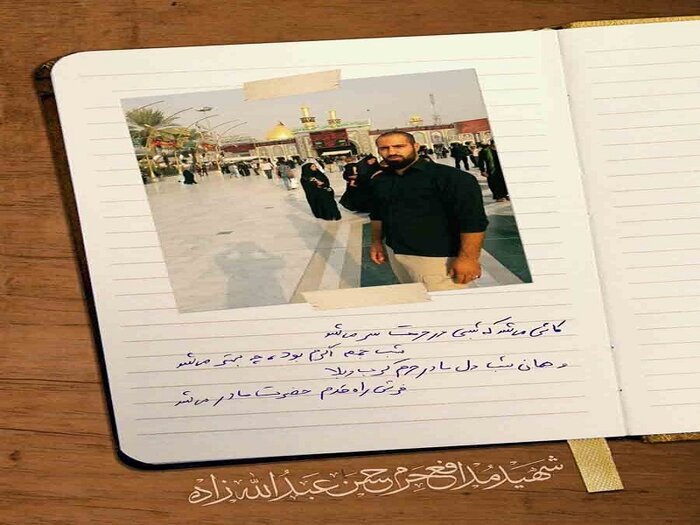 کاش می‌شد که شبی در حرمت سر می‌شد
شب جمعه اگرم بود، چه بهتر می‌شد
و همان شب دل ما در حرم کرب و بلا
فرش راه قدم حضرت مادر می‌شد
شهید مدافع حرم حسن عبدالله زاده